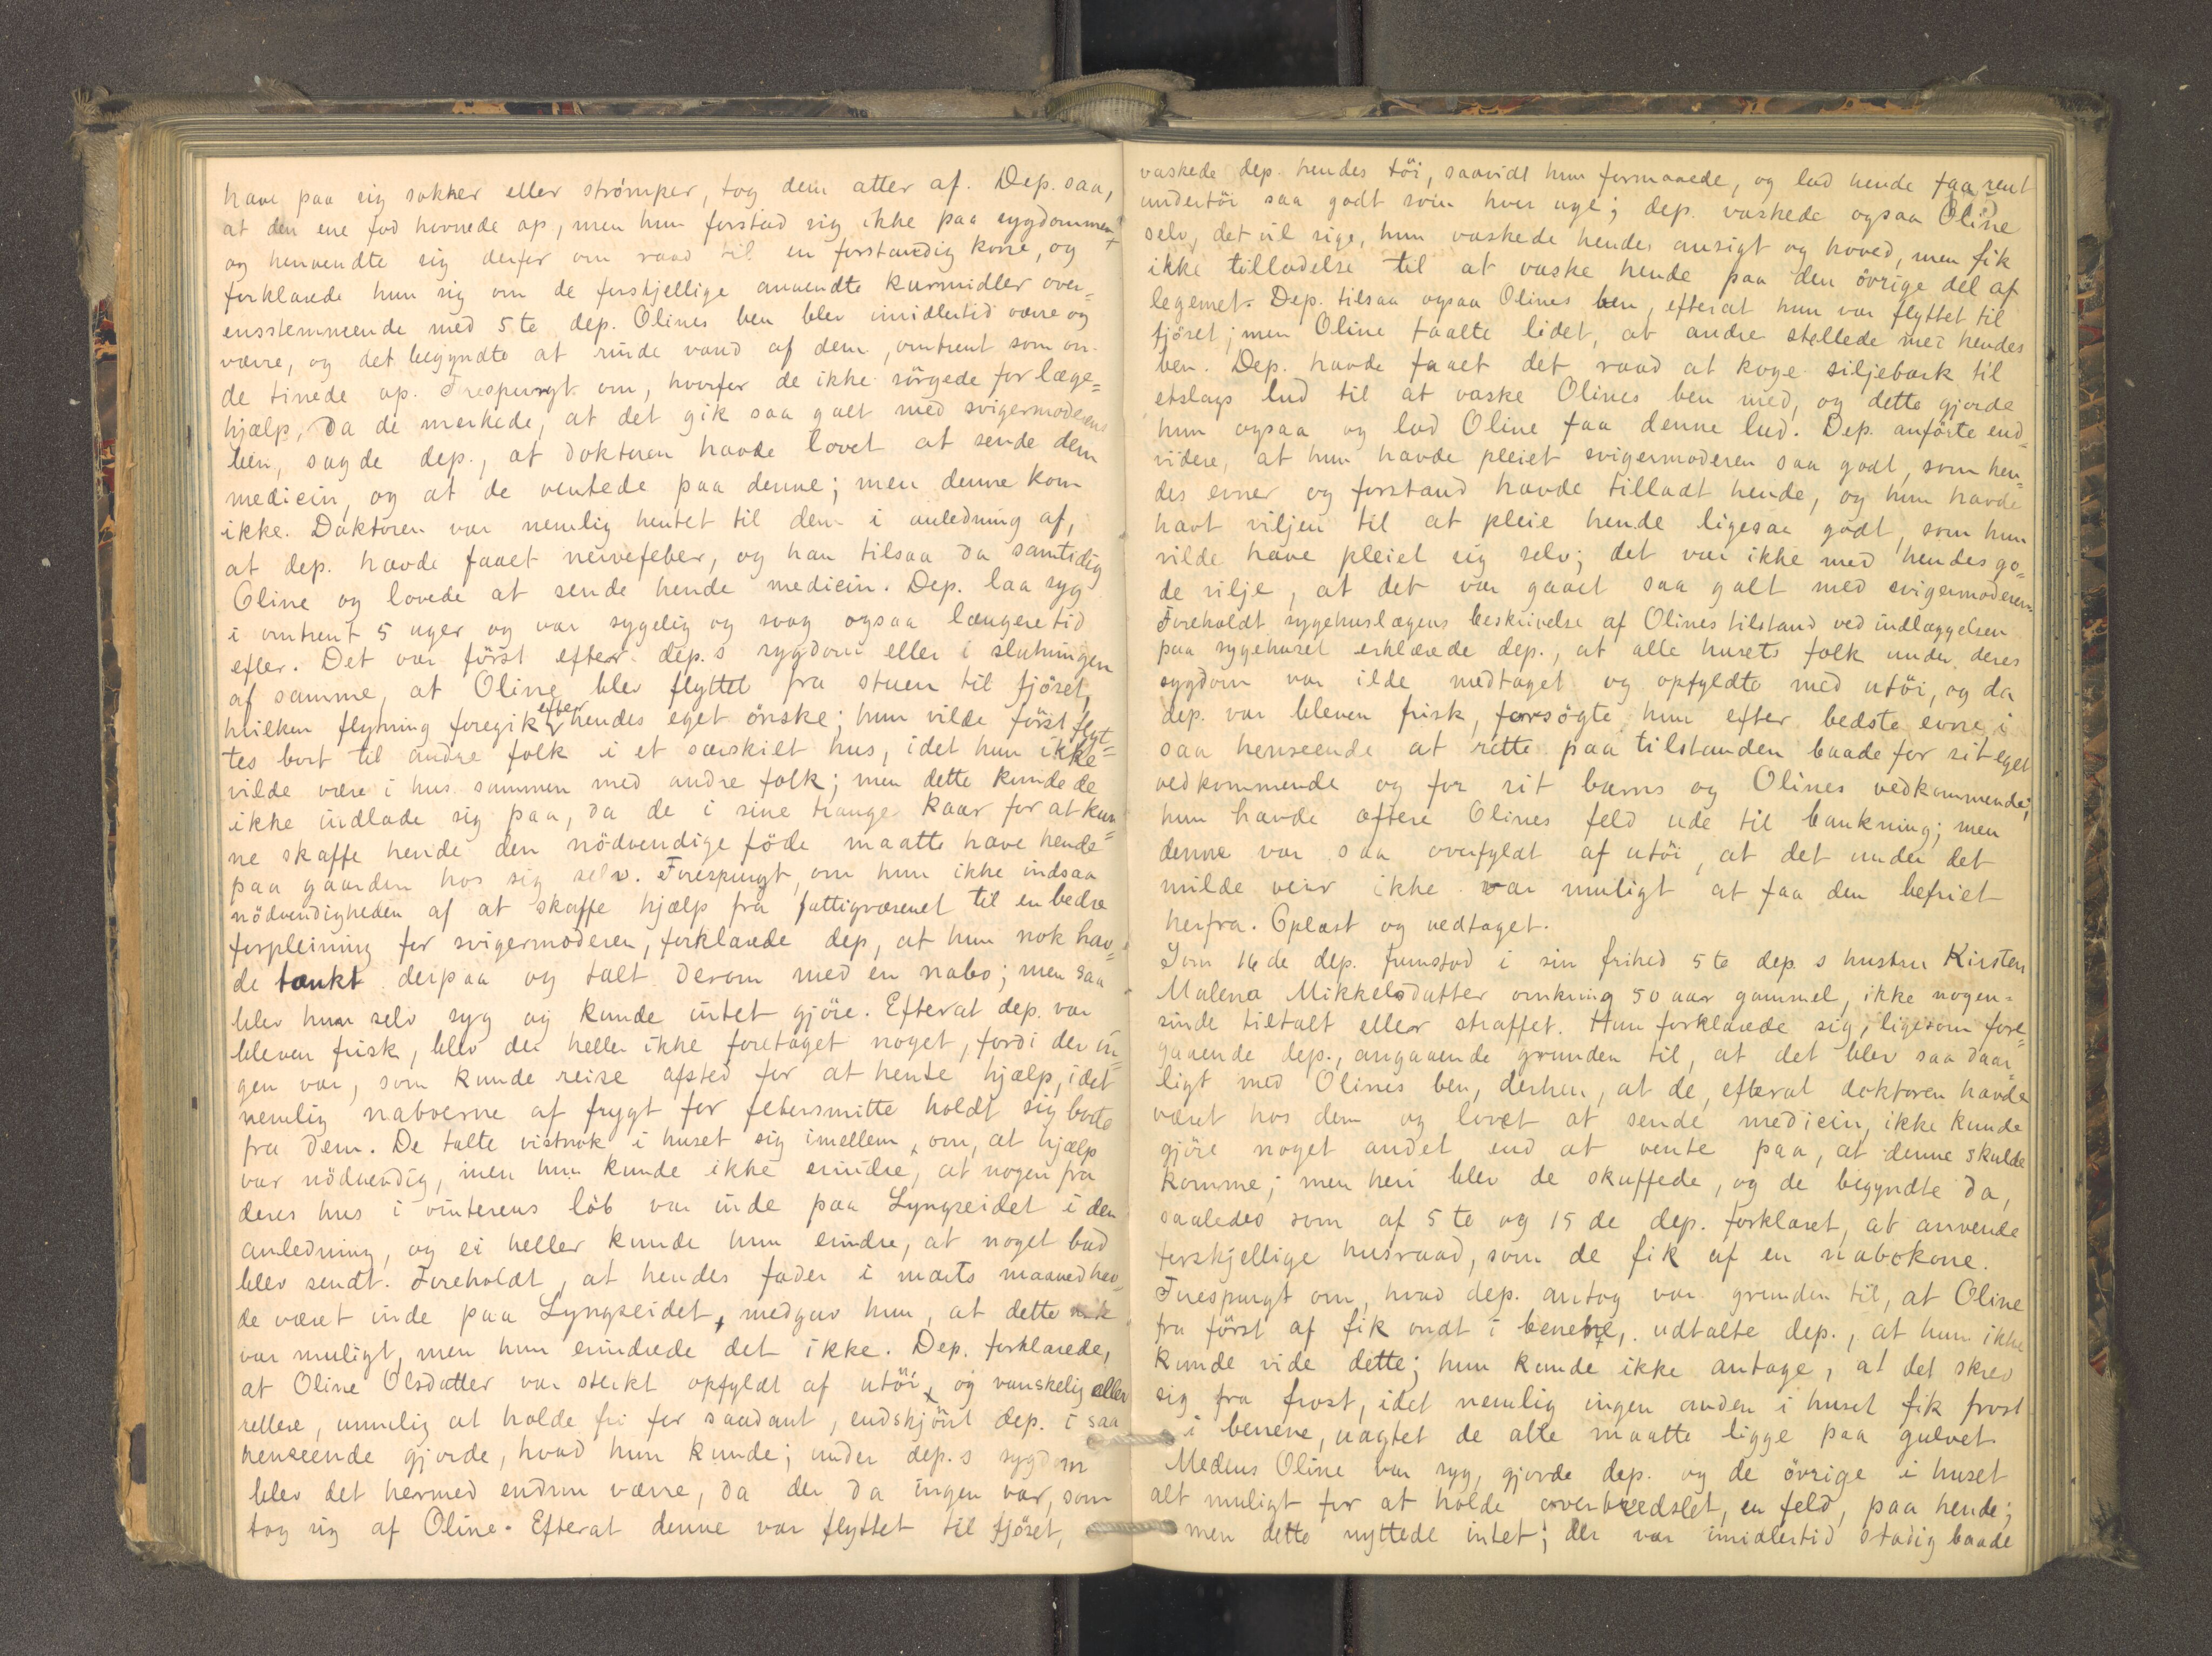 have paa sig sokker eller strømper, tog dem atter af. Dep. saa,
at den ene fod hovnede op, men hun forstod sig ikke paa sygdommen
og henvendte sig derfor om raad til en forstandig kone, og
forklarede hun sig om de forskjellige anvendte kurmidler over=
ensstemmende med 5te dep. Olines ben blev imidlertid værre og
værre, og det begyndte at rinde vand af dem, omtrent som om
de tinede op. Forespurgt om, hvorfor de ikke sörgede for læge=
hjælp, da de merkede, at det gik saa galt med svigermoderens
ben, sagde dep., at doktoren havde lovet at sende dem
medicin, og at de ventede paa denne; men denne kom
ikke. Doktoren var nemlig hentet til dem i anledning af,
at dep. havde faaet nervefeber, og han tilsaa da samtidig
Oline og lovede at sende hende medicin. Dep. laa syg
i omtrent 5 uger og var sygelig og svag ogsaa længere tid
efter. Det var först efter dep.s sygdom eller i slutningen
af samme, at Oline blev flyttet fra stuen til fjöset,
hvilken flytning foregik efter hendes eget önske; hun vilde först flyt=
tes bort til andre folk i et særskilt hus, idet hun ikke
vilde være i hus sammen med andre folk; men dette kunde de
ikke indlade sig paa, da de i sine trange kaar for at kun=
ne skaffe hende den nödvendige föde maatte have hende
paa gaarden hos sig selv. Forespurgt, om hun ikke indsaa
nödvendigheden af at skaffe hjælp fra fattigvæsenet til en bedre
forpleining for svigermoderen, forklarede dep, at hun nok hav=
de tænkt derpaa og talt derom med en nabo; men saa
blev hun selv syg og kunde intet gjöre. Efterat dep. var
bleven frisk, blev der heller ikke foretaget noget, fordi der in=
gen var, som kunde reise afsted for at hente hjælp, idet
nemlig naboerne af frygt for febersmitte holdt sig borte
fra dem. De talte vistnok i huset sig imellem om, at hjælp
var nödvendig, men hun kunde ikke erindre, at nogen fra
deres hus i vinterens löb var inde paa Lyngseidet i den
anledning, og ei heller kunde hun erindre, at noget bud
blev sendt. Foreholdt, at hendes fader i marts maaned hav=
de været inde paa Lyngseidet, medgav hun, at dette nok
var muligt, men hun erindrede det ikke. Dep. forklarede,
at Oline Olsdatter var sterkt opfyldt af utöi, og vanskelig eller
rettere, umulig at holde fri for saadant, endskjönt dep. i saa
henseende gjorde, hvad hun kunde; under dep.s sygdom
blev det hermed endnu værre, da der da ingen var, som
tog sig af Oline. Efterat denne var flyttet til fjöset,
vaskede dep. hendes töi, saavidt hun formaaede, og lod hende faa rent
undertöi saa godt som hver uge; dep. vaskede ogsaa Oline
selv, det vil sige, hun vaskede hendes ansigt og hoved, men fik
ikke tilladelse til at vaske hende paa den övrige del af
legemet. Dep. tilsaa ogsaa Olines ben, efterat hun var flyttet til
fjöset; men Oline taalte lidet, at andre stellede med hendes
ben. Dep. havde faaet det raad at koge siljebark til
etslags lud til at vaske Olines ben med, og dette gjorde
hun ogsaa og lod Oline faa denne lud. Dep. anförte end=
videre, at hun havde pleiet svigermoderen saa godt, som hen=
des evner og forstand havde tilladt hende, og hun havde
havt viljen til at pleie hende ligesaa godt, som hun
vilde have pleiet sig selv; det var ikke med hendes go=
de vilje, at det var gaaet saa galt med svigermoderen.
Foreholdt sygehuslægens beskrivelse af Olines tilstand ved indlæggelsen
paa sygehuset erklærede dep., at alle husets folk under deres
sygdom var ilde medtaget og opfyldte med utöi, og da
dep. var bleven frisk, forsögte hun efter bedste evne i
saa henseende at rette paa tilstanden baade for sit eget
vedkommende og for sit barns og Olines vedkommende;
hun havde oftere Olines feld ude til bankning; men
denne var saa overfyldt af utöi, at det under det
milde veir ikke var muligt at faa den befriet
herfra. Oplæst og vedtaget.
Som 16de dep. fremstod i sin frihed 5te dep.s hustru Kirsten
Malena Mikkelsdatter omkring 50 aar gammel, ikke nogen=
sinde tiltalt eller straffet. Hun forklarede sig, ligesom fore=
gaaende dep., angaaende grunden til, at det blev saa daar=
ligt med Olines ben, derhen, at de, efterat doktoren havde
været hos dem og lovet at sende medicin, ikke kunde
gjöre noget andet end at vente paa, at denne skulde
komme; men heri blev de skuffede, og de begyndte da,
saaledes som af 5te og 15de dep. forklaret, at anvende
forskjellige husraad, som de fik af en nabokone.
Forespurgt om, hvad dep. antog var grunden til, at Oline
fra först af fik ondt i benene, udtalte dep., at hun ikke
kunde vide dette; hun kunde ikke antage, at det skrev
sig fra frost, idet nemlig ingen anden i huset fik frost
i benene, uagtet de alle maatte ligge paa gulvet.
Medens Oline var syg, gjorde dep. og de övrige i huset
alt muligt for at holde overbredslet, en feld, paa hende;
men dette nyttede intet; der var imidlertid stadig baade